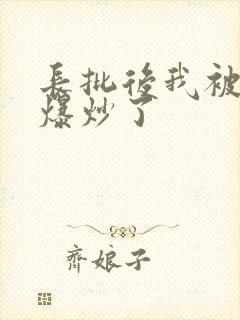 長批後我被
爆炒了
齊娘子